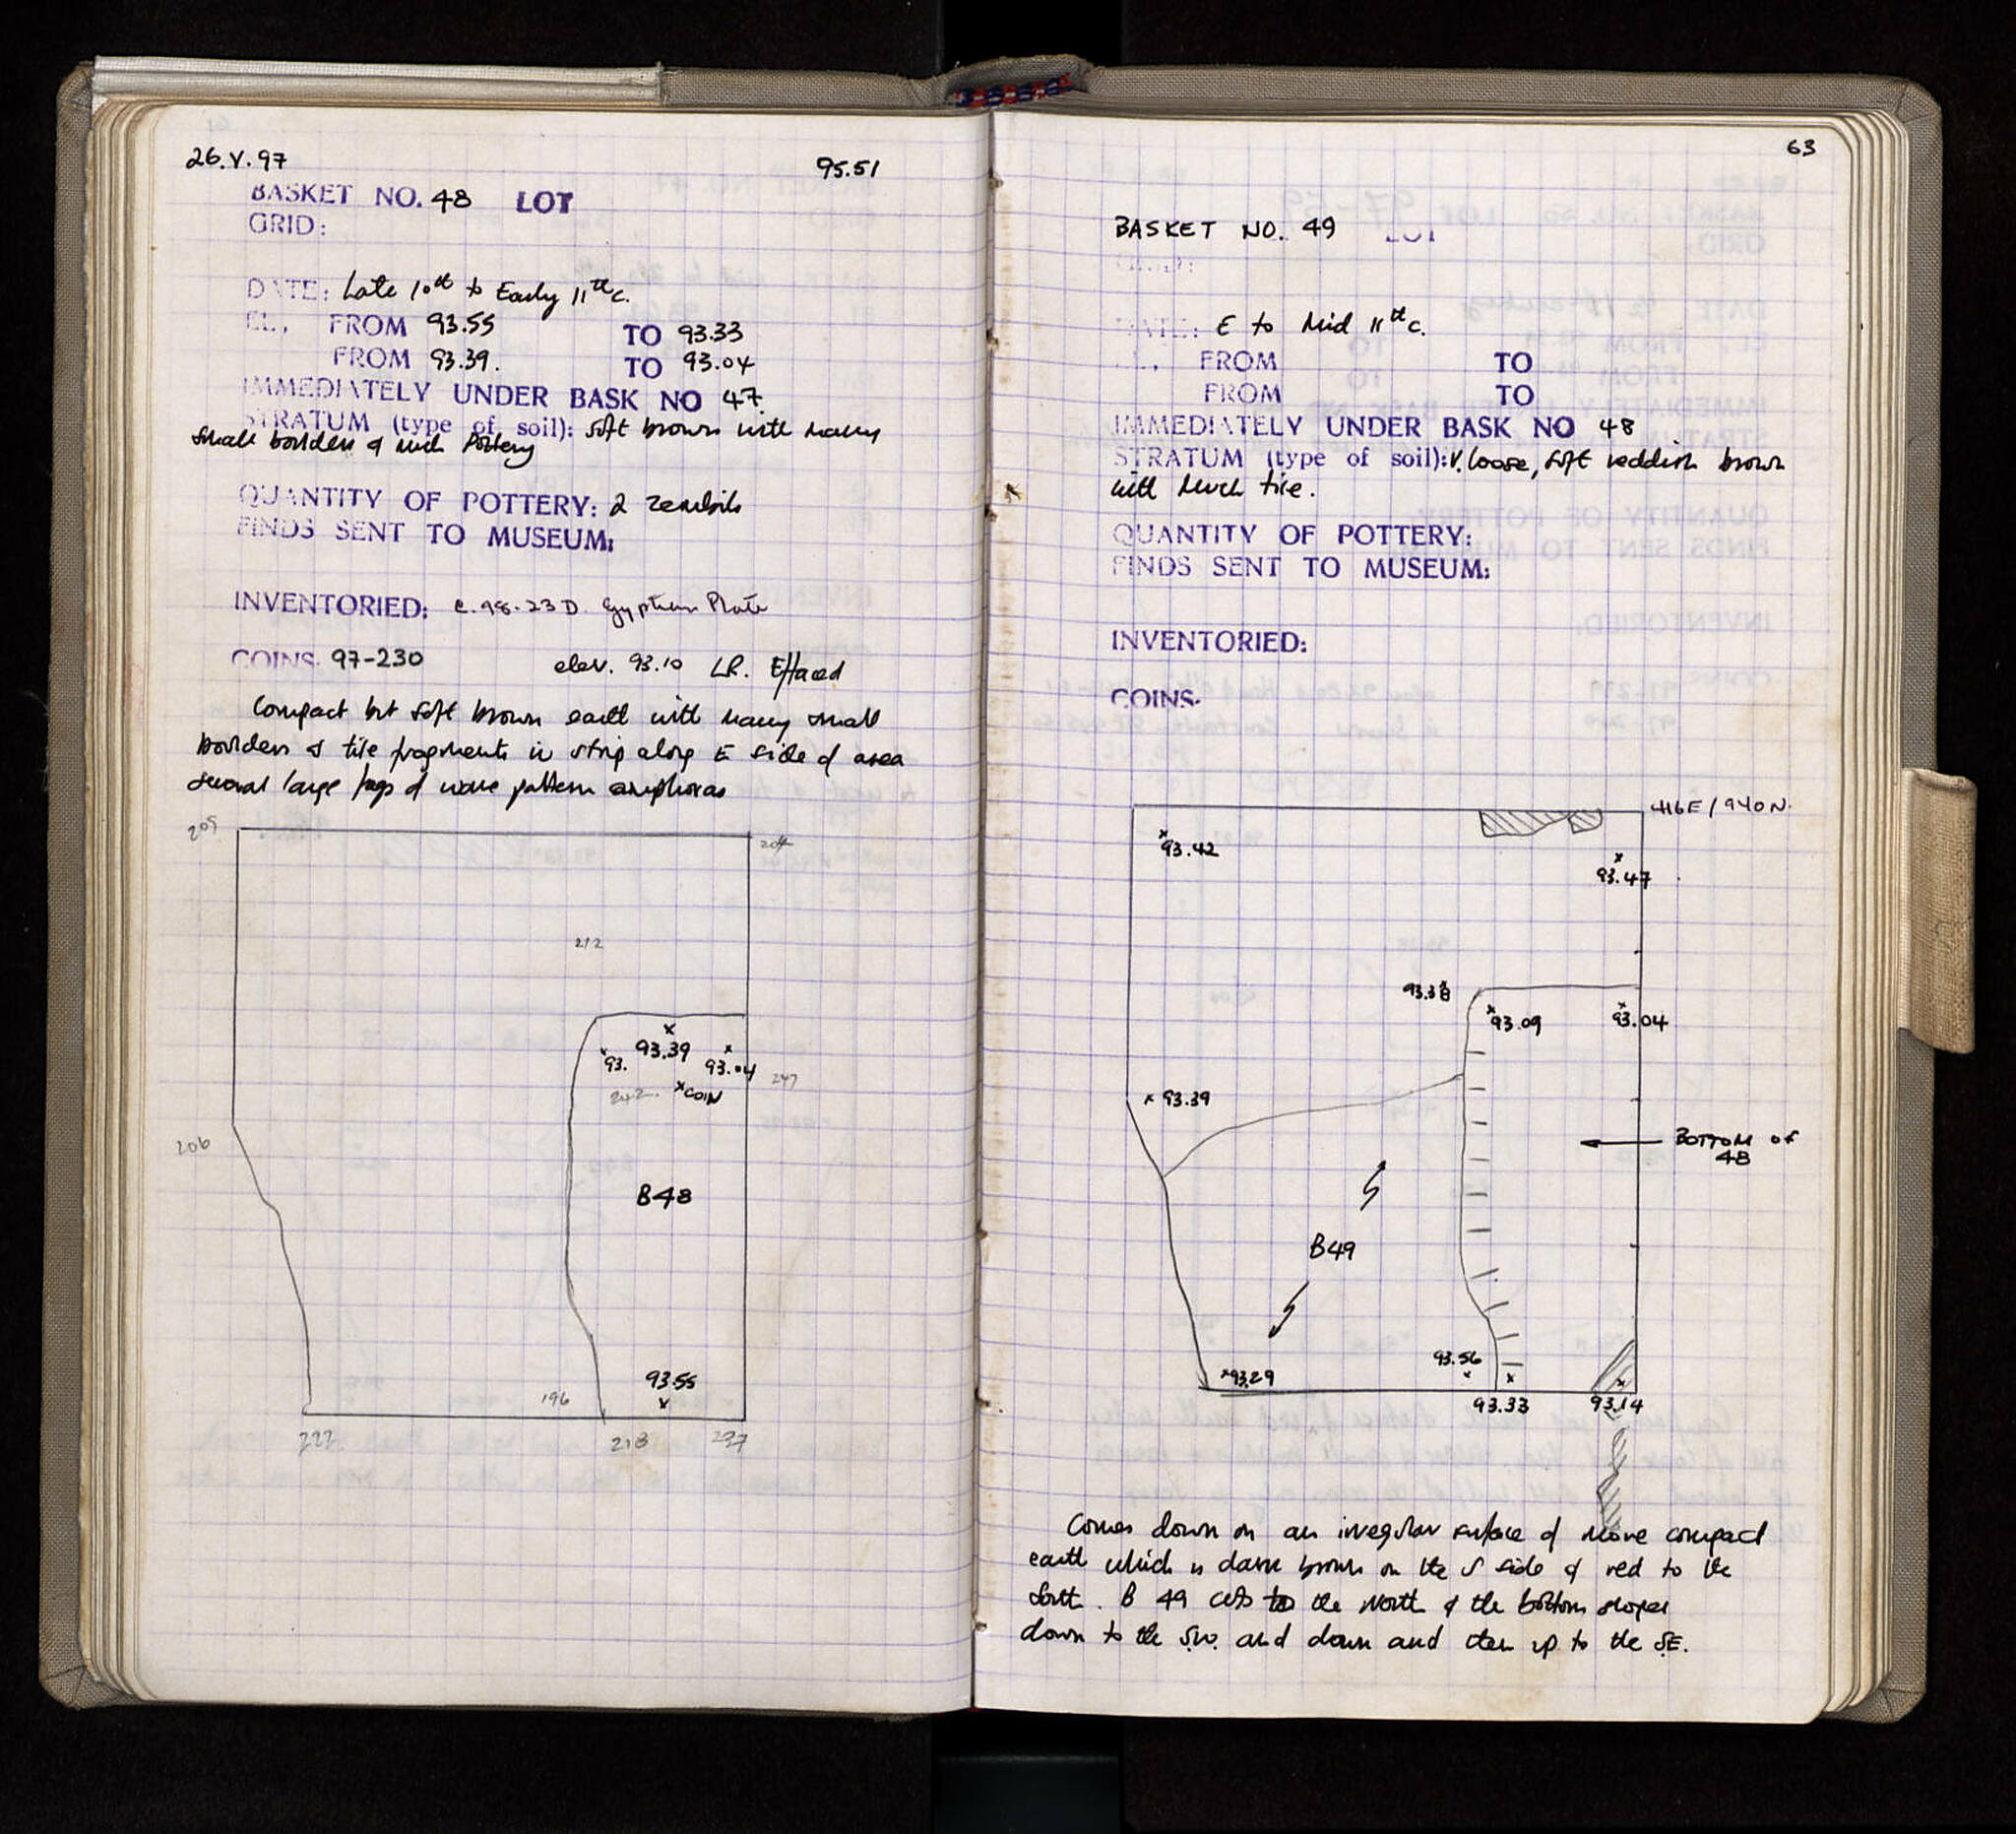 26.V.97
95.51
BASKET NO. 48 LOT
GRID:
DATE: Late 10th to Early 11th c.
EL. FROM 93.55 TO 93.33
FROM 93.39. TO 93.04
IMMEDIATELY UNDER BASK NO 47
STRATUM (type of soil): Soft brown with many
small boulders & much Pottery
QUANTITY OF POTTERY: 2 zembils
FINDS SENT TO MUSEUM:
INVENTORIED: C.98-23D Plate
COINS. 97-230 elev. 93.10 LR. Effaced
Compact but soft brown earth with many small
boulders & tile fragments in strip along E side of area
several large frags of wave pattern amphoras
205
204
212
93.39
93.
93.04
242
COIN
247
206
B48
93.55
196
222
218
237
63
BASKET NO. 49 LOT
GRID:
DATE: E to Mid 11th c.
EL. FROM TO
FROM TO
IMMEDIATELY UNDER BASK NO 48
STRATUM (type of soil): V. loose, soft reddish brown
with much tile.
QUANTITY OF POTTERY:
FINDS SENT TO MUSEUM:
INVENTORIED:
COINS.
416E/940N.
93.42
93.47
93.38
93.09
93.04
93.39
BOTTOM OF
48
B49
93.56
93.29
93.33
93.14
Comes down on an irregular surface of more compact
earth which is dark brown on the side & red to the
South. B 49 cuts to the North & the bottom slopes
down to the SW. and down and then up to the SE.